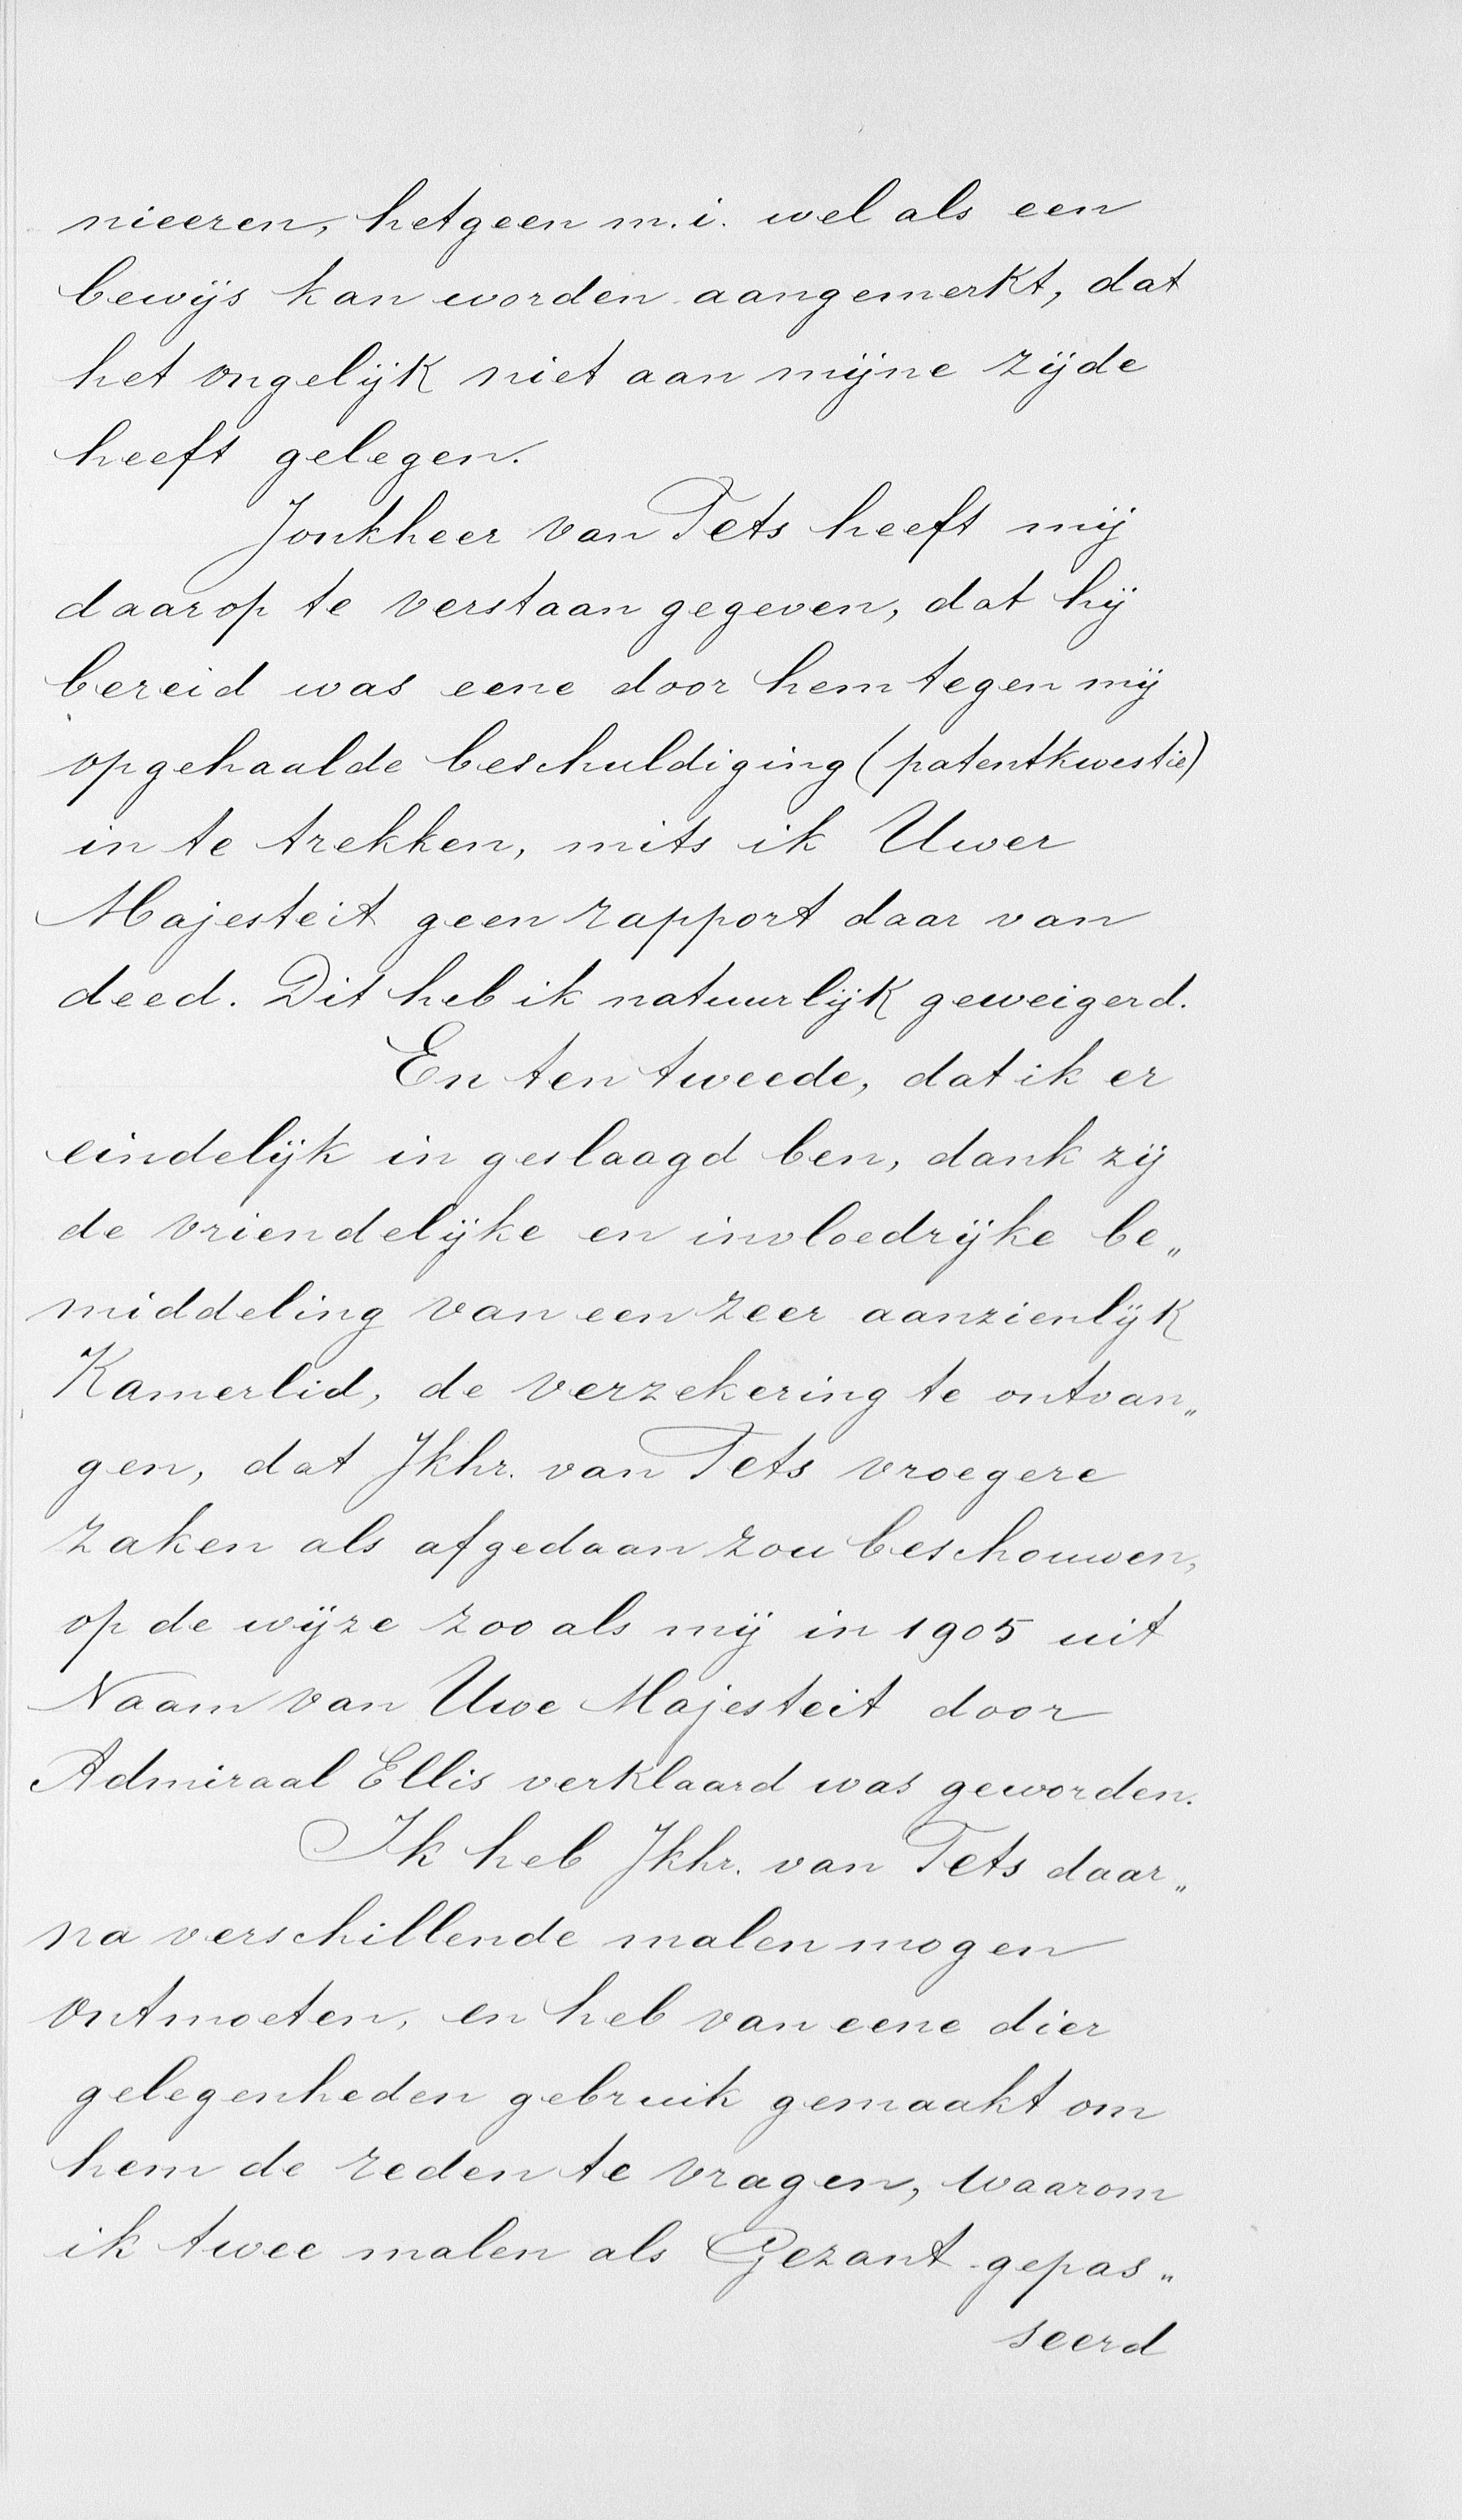 nieeren, hetgeen m.i. wel als een
bewijs kan worden aangemerkt, dat
het ongelijk niet aan mijne zijde
heeft gelegen.
Jonkheer van Tets heeft mij
daarop te verstaan gegeven, dat hij
bereid was eene door hem tegen mij
opgehaalde beschuldiging (patentkwestie)
in te trekken, mits ik Uwer
Majesteit geen rapport daar van
deed. Dit heb ik natuurlijk geweigerd.
En ten tweede, dat ik er
eindelijk in geslaagd ben, dank zij
de vriendelijke en invloedrijke be„
middeling van een zeer aanzienlijk
Kamerlid, de verzekering te ontvan„
gen, dat Jkhr. van Tets vroegere
zaken als afgedaan zou beschouwen,
op de wijze zooals mij in 1905 uit
Naam van Uwe Majesteit door
Admiraal Ellis verklaard was geworden.
Ik heb Jkhr. van Tets daar„
na verschillende malen mogen
ontmoeten, en heb van eene dier
gelegenheden gebruik gemaakt om
hem de reden te vragen, waarom
ik twee malen als Gezant gepas„
seerd